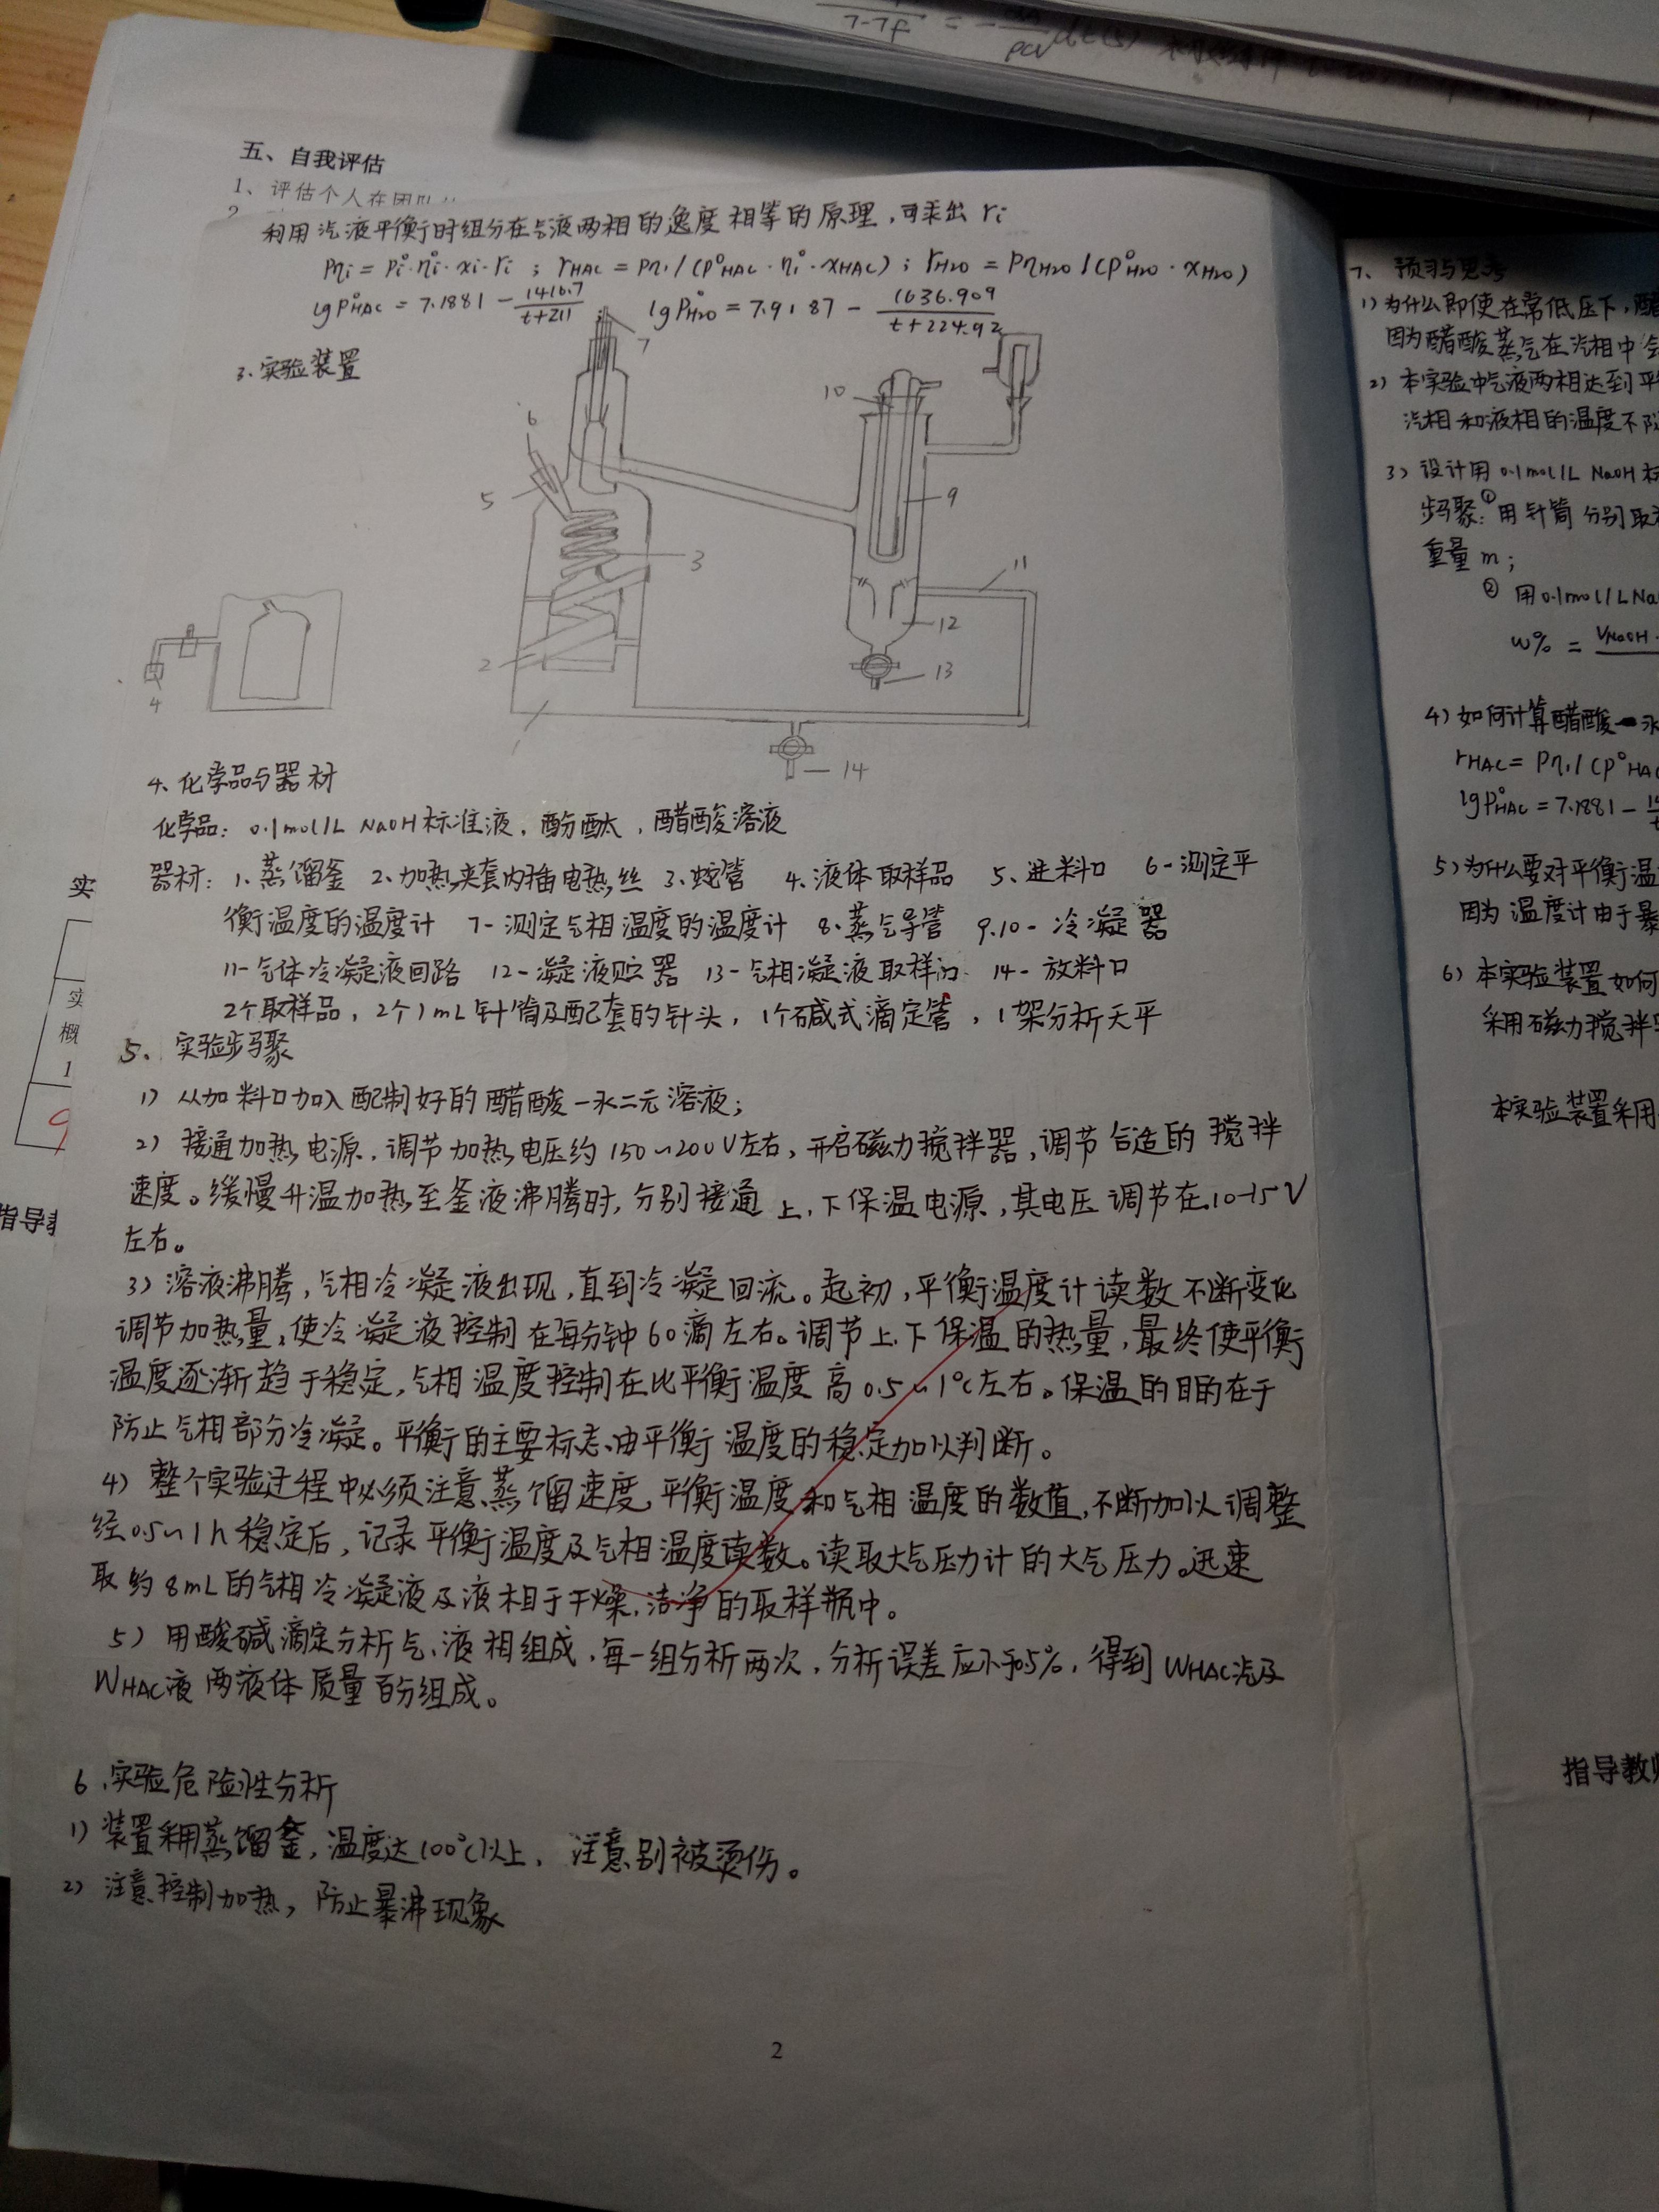 五、自我评估
1、评估个人在团队
2
利用汽液平衡时组分在气液两相的逸度相等的原理,可求出 ri
Pηi = Pi°·ηi°·xi·ri ; rHAC = Pη1 / (P°HAC·ηi°·xHAC) ; rH2O = PηH2O / (P°H2O·xH2O)
lgP°HAC = 7.1881 - 1416.7/(t+211) ; lgP°H2O = 7.9187 - 1636.909/(t+224.92)
3.实验装置
7
6
5
3
2
1
4
10
9
11
12
13
14
4.化学品与器材
化学品: 0.1mol/L NaOH标准液,酚酞,醋酸溶液
器材: 1.蒸馏釜 2.加热夹套内插电热丝 3.蛇管 4.液体取样品 5.进料口 6-测定平
衡温度的温度计 7-测定气相温度的温度计 8.蒸气导管 9.10-冷凝器
11-气体冷凝液回路 12-凝液贮器 13-气相凝液取样口 14-放料口
2个取样品,2个1mL针筒及配套的针头,1个碱式滴定管,1架分析天平
5、实验步骤
1) 从加料口加入配制好的醋酸-水二元溶液;
2) 接通加热电源,调节加热电压约150~200V左右,开启磁力搅拌器,调节合适的搅拌
速度。缓慢升温加热至釜液沸腾时,分别接通上、下保温电源,其电压调节在10-15V
左右。
3) 溶液沸腾,气相冷凝液出现,直到冷凝回流。起初,平衡温度计读数不断变化
调节加热量,使冷凝液控制在每分钟60滴左右。调节上、下保温的热量,最终使平衡
温度逐渐趋于稳定,气相温度控制在比平衡温度高0.5~1℃左右。保温的目的在于
防止气相部分冷凝。平衡的主要标志由平衡温度的稳定加以判断。
4) 整个实验过程中必须注意蒸馏速度、平衡温度和气相温度的数值,不断加以调整
经0.5~1h稳定后,记录平衡温度及气相温度读数。读取大气压力计的大气压力。迅速
取约8mL的气相冷凝液及液相于干燥、洁净的取样瓶中。
5) 用酸碱滴定分析气、液相组成,每一组分析两次,分析误差应小于5%,得到WHAC汽及
WHAC液两液体质量百分组成。
6、实验危险性分析
1) 装置采用蒸馏釜,温度达100℃以上,注意别被烫伤。
2) 注意控制加热,防止暴沸现象
2
实
实
概
1
指导
7、预习与思考
1) 为什么即使在常低压下,醋
因为醋酸蒸气在汽相中
2) 本实验中气液两相达到平
汽相和液相的温度不
3) 设计用0.1mol/L NaOH
步骤:① 用针筒分别取
重量m;
② 用0.1mol/L Na
w% = VNaOH
4) 如何计算醋酸-水
rHAC = Pη1 / (P°HAC
lgP°HAC = 7.1881 -
5) 为什么要对平衡温
因为温度计由于暴
6) 本实验装置如何
采用磁力搅拌
本实验装置采用
指导教师